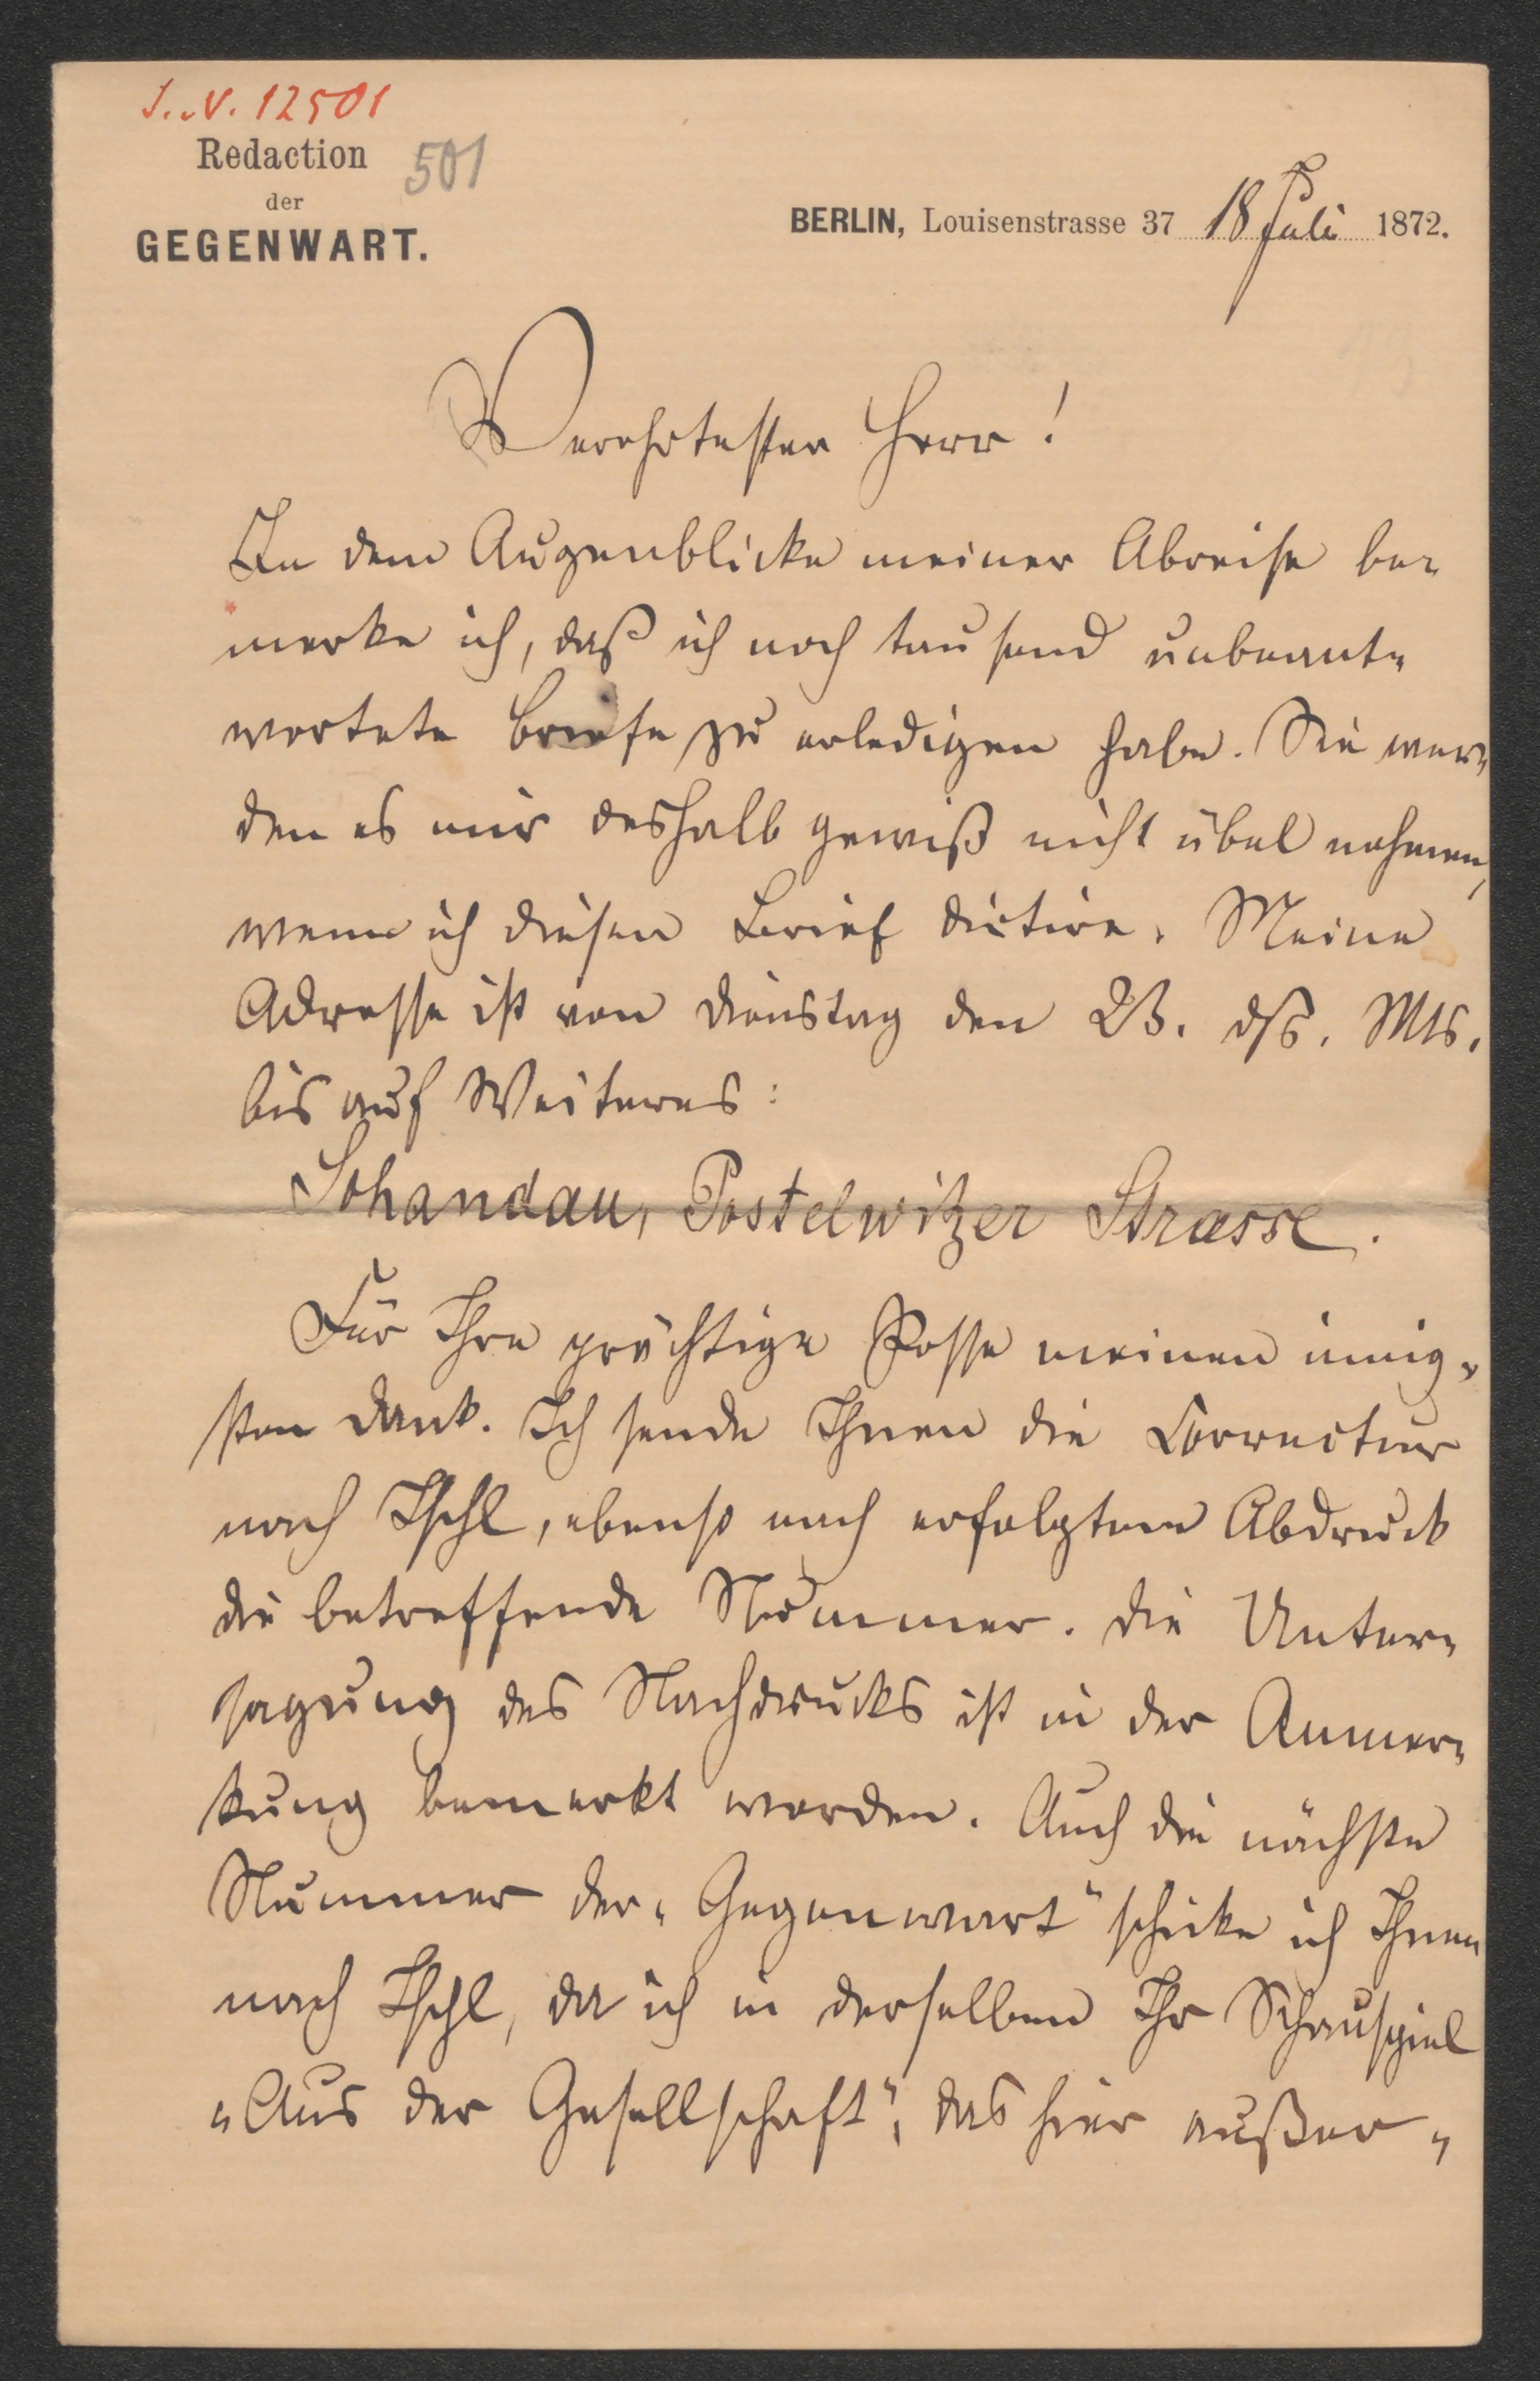 J.N. 12501
Redaction 501
der
GEGENWART.
BERLIN, Louisenstrasse 37 18 Juli 1872.
Verehrtester Herr!
In dem Augenblicke meiner Abreise be-
merke ich, daß ich noch tausend unbeant-
wortete Briefe zu erledigen habe. Sie wer-
den es mir deshalb gewiß nicht übel nehmen,
wenn ich diesen Brief dictire. Meine
Adresse ist von Dienstag den 23. dss. Mts.
bis auf Weiteres:
Schandau, Postelwitzer Strasse.
Für Ihre prächtige Posse meinen innig-
sten Dank. Ich sende Ihnen die Correctur
nach Ischl, ebenso nach erfolgtem Abdruck
die betreffende Nummer. Die Unter-
sagung des Nachdrucks ist in der Anmer-
kung bemerkt worden. Auch die nächste
Nummer der „Gegenwart“ schicke ich Ihnen
nach Ischl, da ich in derselben Ihr Schauspiel
„Aus der Gesellschaft“, das hier außer-